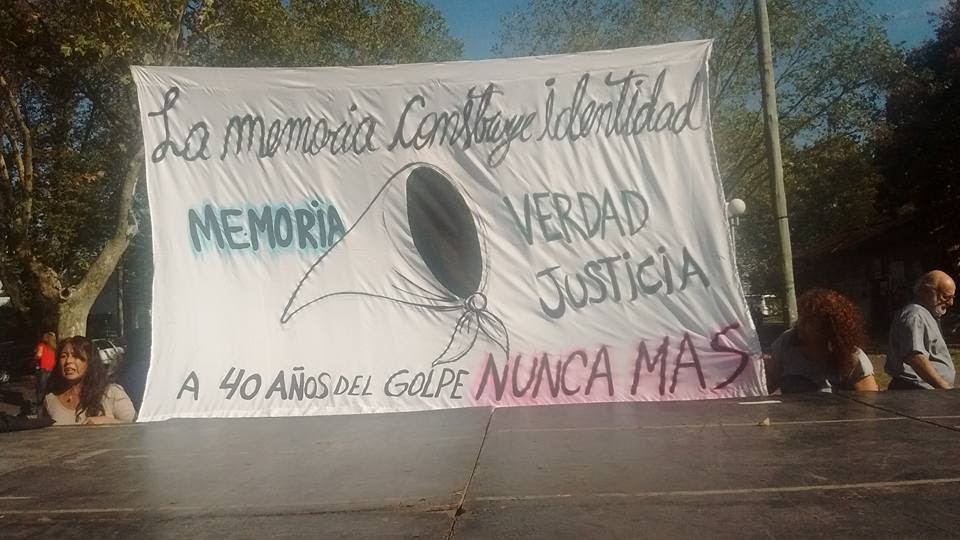 La memoria Construye identidad
MEMORiA
VERDAD
JUSTiCiA
A 40 AÑOS DEL GOLPE NUNCA MAS